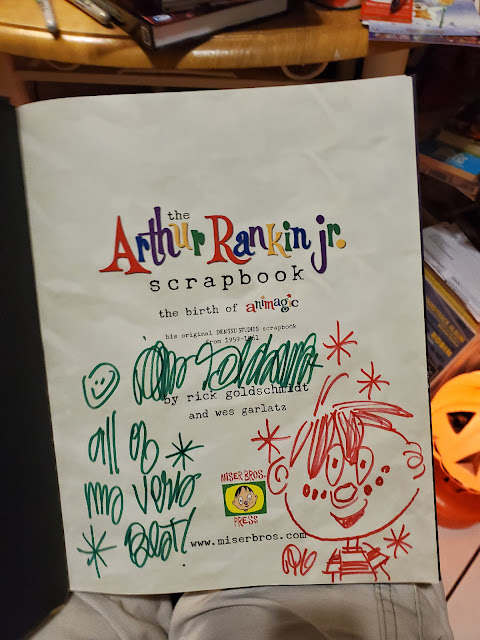 the
Arthur Rankin jr.
scrapbook
the birth of animagic
his original DENTSU STUDIOS scrapbook
from 1959-1961
by rick goldschmidt
and wes garlatz
all of
my very
Best!
MISER BROS.
PRESS
www.miserbros.com